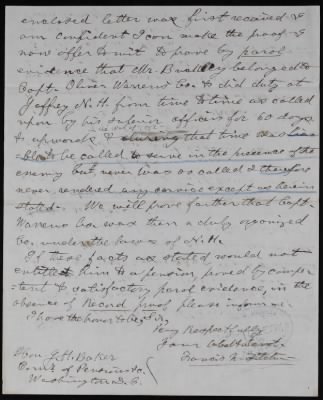 enclosed letter was first received &
am confident I can make the proof &
now offer to wit to prove by parol
evidence that Mr. Bradley belonged to
Capt. Oliver Warrens Co. & did duty at
Jaffrey N.H. from time to time as called
upon by his superior officers for 60 days
& upwards & during that time was liable
to be called to serve in the presence of the
enemy but never was so called & therefore
never rendered any service except as herein
stated. We will prove further that Capt.
Warrens Co. was then a duly organized
Co. under the laws of N.H.
If these facts as stated would not
entitle him to a pension, proved by compe-
tent & satisfactory parol evidence, in the
absence of Record proof please inform me.
I have the honor to be Sir,
Very Respectfully
Your Obt Servant.
Francis N.
Hon J. H. Baker
Comr. of Pensions &c.
Washington D.C.